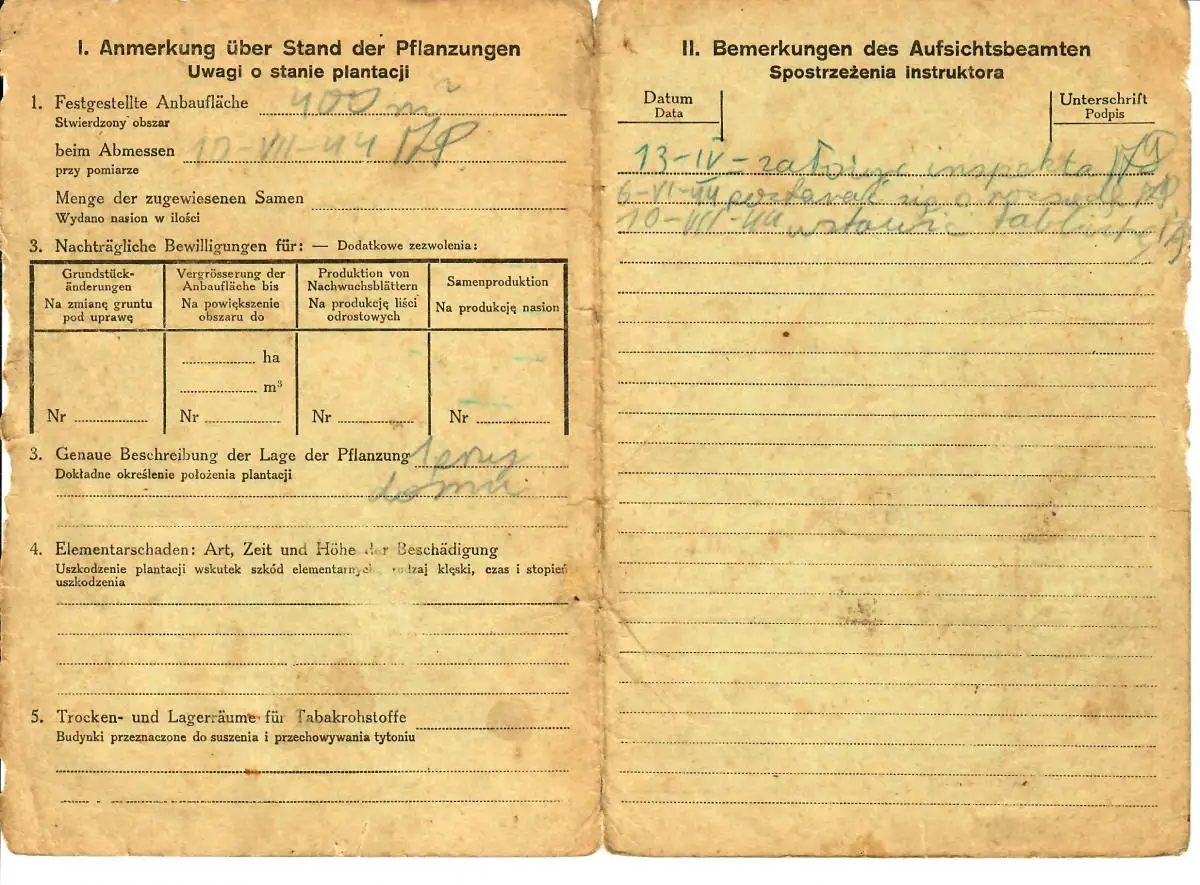 I. Anmerkung über Stand der Pflanzungen
Uwagi o stanie plantacji
1. Festgestellte Anbaufläche 400 m²
Stwierdzony obszar
beim Abmessen 10-VII-44
przy pomiarze
Menge der zugewiesenen Samen
Wydano nasion w ilości
3. Nachträgliche Bewilligungen für: — Dodatkowe zezwolenia:
Grundstück-änderungen
Na zmianę gruntu pod uprawę
Nr
Vergrösserung der Anbaufläche bis
Na powiększenie obszaru do
ha
m³
Nr
Produktion von Nachwuchsblättern
Na produkcję liści odrostowych
Nr
Samenproduktion
Na produkcję nasion
Nr
3. Genaue Beschreibung der Lage der Pflanzung
Dokładne określenie położenia plantacji
domu
4. Elementarschaden: Art, Zeit und Höhe der Beschädigung
Uszkodzenie plantacji wskutek szkód elementarnych, rodzaj klęski, czas i stopień
uszkodzenia
5. Trocken- und Lagerräume für Tabakrohstoffe
Budynki przeznaczone do suszenia i przechowywania tytoniu
II. Bemerkungen des Aufsichtsbeamten
Spostrzeżenia instruktora
Datum
Data
Unterschrift
Podpis
13-IV- założyć inspekta
6-VI-44 postarać się o rozsadę
10-VII-44 wstawić tabliczkę